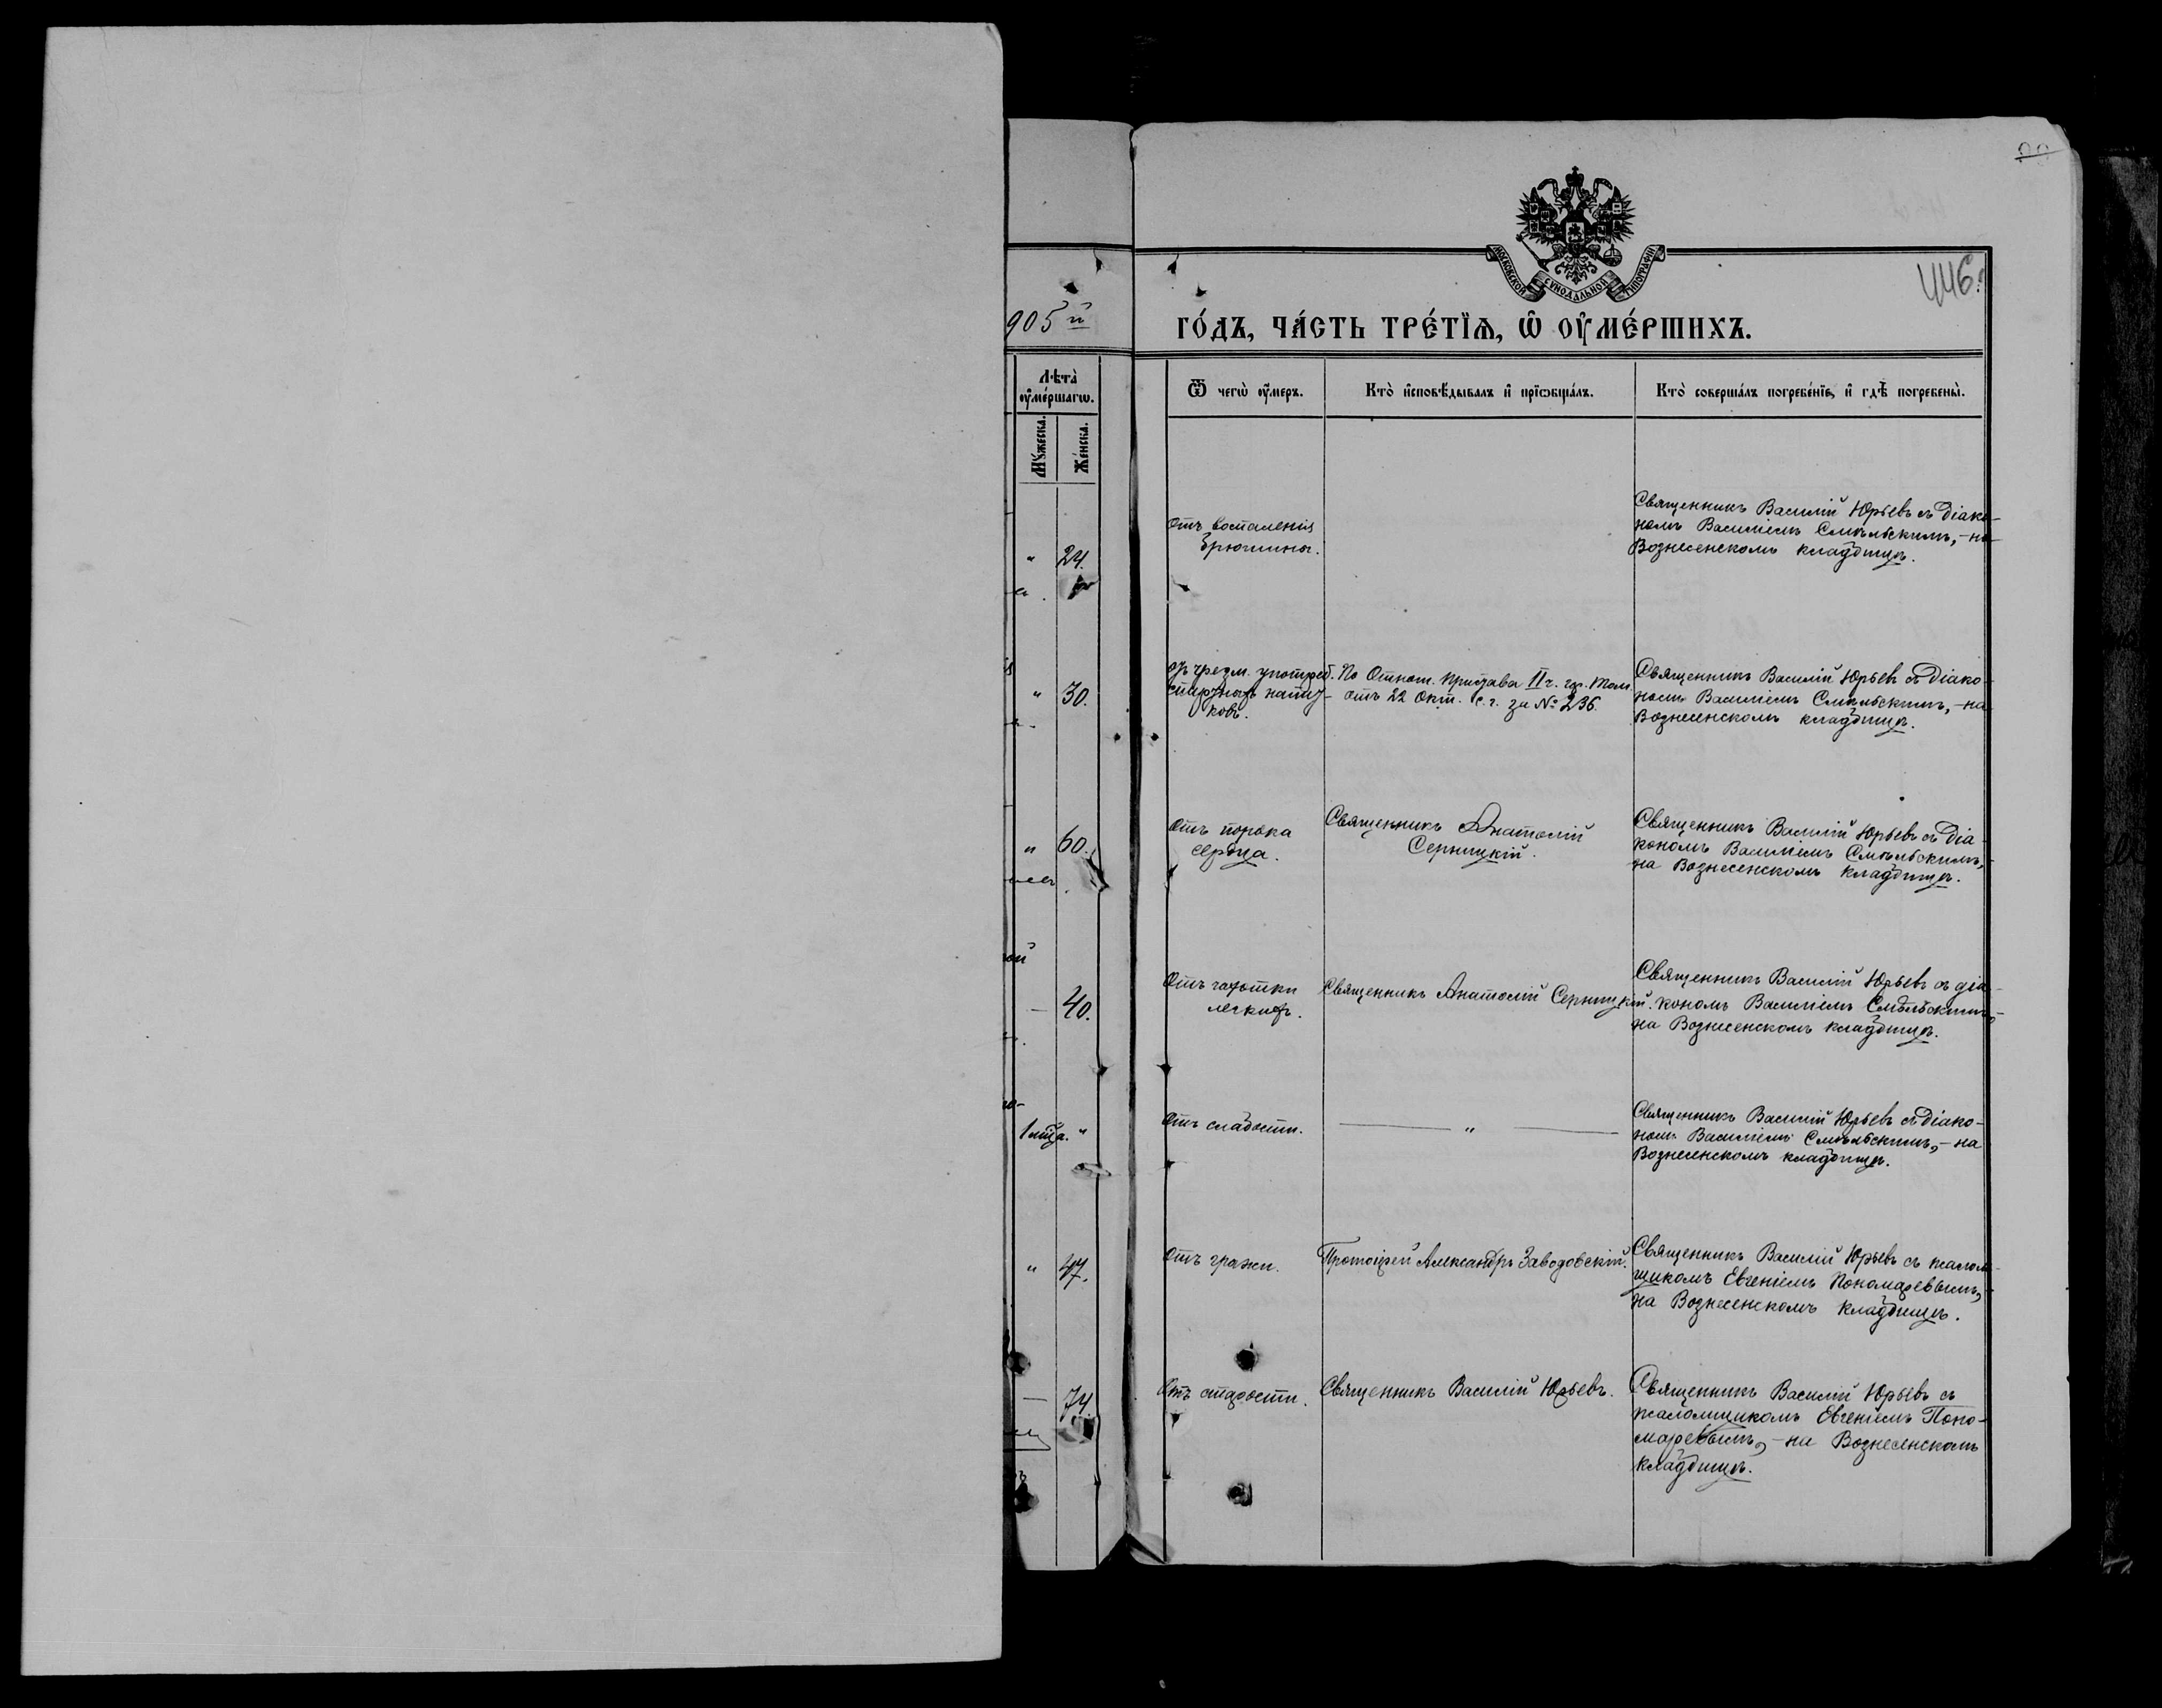 МОСКОВСКОЙ СѴНОДАЛЬНОЙ ТИПОГРАФІИ
446.
905 й
ГО́ДЪ, ЧА́СТЬ ТРЕ́ТЇѦ, Ѡ҆ ОУ҆МЕ́РШИХЪ.
Лѣта̀
оу҆ме́ршагѡ.
Му́жеска.
Же́нска.
Ѿ чегѡ̀ оу҆́меръ.
Кто̀ и҆сповѣ́дывалъ и҆ прїѡбща́лъ.
Кто̀ соверша́лъ погребе́нїе, и҆ гдѣ̀ погребены̀.
" 24.
Отъ воспаленія
брюшины.
Священникъ Василій Юрьевъ съ діако-
номъ Василіемъ Смѣльскимъ, - на
Вознесенскомъ кладбищѣ.
" 30.
чрезм. употреб.
спиртныхъ напит-
ковъ.
По Отнош. пристава II ч. гр. Том.
отъ 22 Окт. с. г. за № 236.
Священникъ Василій Юрьевъ съ діако-
номъ Василіемъ Смѣльскимъ, - на
Вознесенскомъ кладбищѣ.
" 60.
Отъ порока
сердца.
Священникъ Анатолій
Серницкій.
Священникъ Василій Юрьевъ съ діа-
кономъ Василіемъ Смѣльскимъ, -
на Вознесенскомъ кладбищѣ.
— 40.
Отъ чахотки
легкихъ.
Священникъ Анатолій Серницкій.
Священникъ Василій Юрьевъ съ діа-
кономъ Василіемъ Смѣльскимъ, -
на Вознесенскомъ кладбищѣ.
1 мѣц. "
Отъ слабости.
— " —
Священникъ Василій Юрьевъ съ діако-
номъ Василіемъ Смѣльскимъ, - на
Вознесенскомъ кладбищѣ.
" 47.
Отъ грыжи.
Протоіерей Александръ Заводовскій.
Священникъ Василій Юрьевъ съ псалом-
щикомъ Евгеніемъ Пономаревымъ, -
на Вознесенскомъ кладбищѣ.
— 74.
Отъ старости.
Священникъ Василій Юрьевъ.
Священникъ Василій Юрьевъ съ
псаломщикомъ Евгеніемъ Поно-
маревымъ, - на Вознесенскомъ
кладбищѣ.